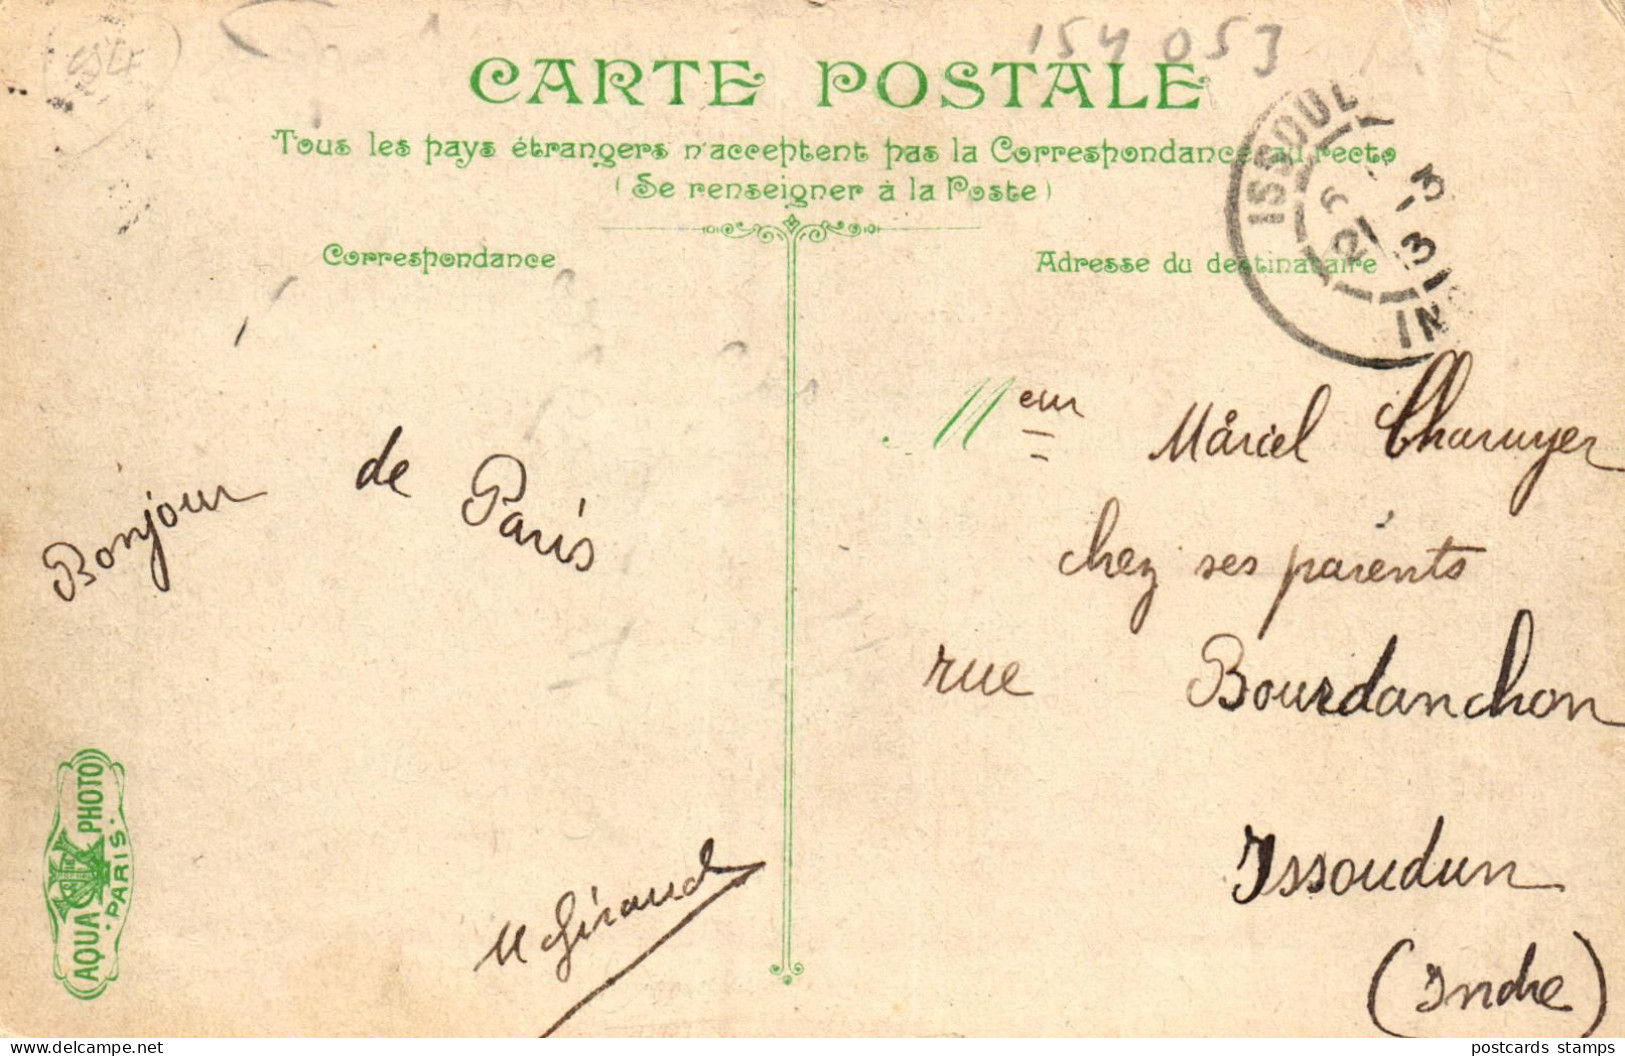 154053
CARTE POSTALE
Tous les pays étrangers n'acceptent pas la Correspondance au recto
(Se renseigner à la Poste)
Correspondance
Adresse du destinataire
ISSOU
21
-3
31
IN
Bonjour de Paris
M Giraud
Meur Marcel
chez ses parents
rue Bourdanchon
Issoudun
(Indre)
AQUA PHOTO
PARIS
www.delcampe.net
postcards stamps